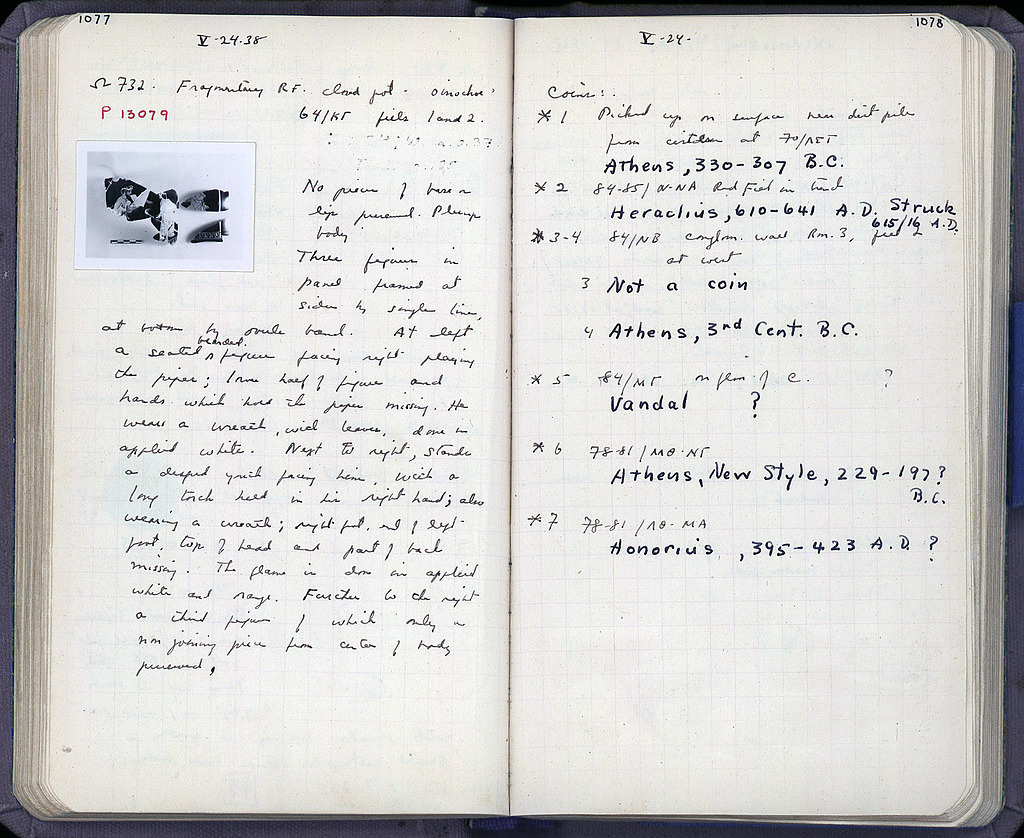 1077
V-24-38
Ω 732. Fragmentary R.F. closed pot - oinochoe?
P 13079
64/ΚΓ fiels 1 and 2.
No piece of base or
lip preserved. Plump
body.
Three figures in
panel framed at
sides by single line,
at bottom by ovule band. At left
bearded
a seated figure facing right playing
the pipes; lower half of figure and
hands which hold the pipes missing. He
wears a wreath, with leaves, done in
applied white. Next to right, stands
a draped youth facing him, with a
long torch held in his right hand; also
wearing a wreath; right foot, end of left
foot, top of head and part of back
missing. The flame is done in applied
white and orange. Further to the right
a third figure of which only a
non joining piece from center of body
preserved.
1078
V-24-
Coins:
* 1 Picked up on surface near dirt pile
from cistern at 70/
Athens, 330-307 B.C.
* 2 84-85/Ν-ΝΑ Red Fill in
Heraclius, 610-641 A.D. Struck
615/16 A.D.
* 3-4 84/ΝΒ conglom. wall Rm. 3,
at west
3 Not a coin
4 Athens, 3rd Cent. B.C.
* 5 84/ΜΓ on floor of C. ?
Vandal ?
* 6 78-81/ΜΘ-ΝΓ
Athens, New Style, 229-197?
B.C.
* 7 78-81/ΛΘ-ΜΑ
Honorius, 395-423 A.D. ?